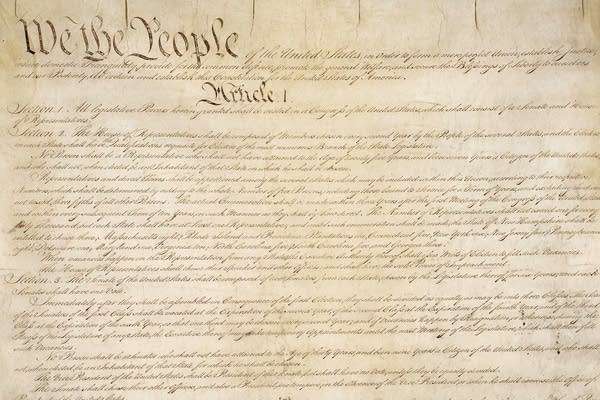 We the People of the United States, in Order to form a more perfect Union, establish Justice,
insure domestic Tranquility, provide for the common defence, promote the general Welfare, and secure the Blessings of Liberty to ourselves
and our Posterity, do ordain and establish this Constitution for the United States of America.
Article I.
Section. 1. All legislative Powers herein granted shall be vested in a Congress of the United States, which shall consist of a Senate and House
of Representatives.
Section. 2. The House of Representatives shall be composed of Members chosen every second Year by the People of the several States, and the Electors
in each State shall have the Qualifications requisite for Electors of the most numerous Branch of the State Legislature.
No Person shall be a Representative who shall not have attained to the Age of twenty five Years, and been seven Years a Citizen of the United States,
and who shall not, when elected, be an Inhabitant of that State in which he shall be chosen.
Representatives and direct Taxes shall be apportioned among the several States which may be included within this Union, according to their respective
Numbers, which shall be determined by adding to the whole Number of free Persons, including those bound to Service for a Term of Years
three fifths of all other Persons. The actual Enumeration shall be made within three Years after the first Meeting of the Congress of the United States,
and within every subsequent Term of ten Years, in such Manner as they shall by Law direct. The Number of Representatives shall not exceed one for every
thirty Thousand, but each State shall have at Least one Representative; and until such enumeration shall be made, the State of New Hampshire shall be
entitled to chuse three, Massachusetts eight,
eight, Delaware one, Maryland six, Virginia ten, North Carolina five, South Carolina five, and Georgia three.
When vacancies happen in the Representation from any State, the Executive Authority thereof shall issue Writs of Election to fill such Vacancies.
The House of Representatives shall chuse their Speaker and other Officers; and shall have the sole Power of Impeachment.
Section. 3. The Senate of the United States shall be composed of two Senators from each State, chosen by the Legislature thereof, for six Years; and each
Senator shall have one Vote.
Immediately after they shall be assembled in Consequence of the first Election, they shall be divided as equally as may be into three Classes. The Seats
of the Senators of the first Class shall be vacated at the Expiration of the second Year, of the second Class at the Expiration of the fourth Year,
Class at the Expiration of the sixth Year, so that one third may be chosen every second Year; and if Vacancies happen by Resignation, or otherwise, during the
Recess of the Legislature of any State, the Executive thereof may make temporary Appointments until the next Meeting of the Legislature, which shall then fill
such Vacancies.
No Person shall be a Senator who shall not have attained to the Age of thirty Years, and been nine Years a Citizen of the United States, and who shall
not, when elected, be an Inhabitant of that State for which he shall be chosen.
The Vice President of the United States shall be President of the Senate, but shall have no Vote, unless they be equally divided.
The Senate shall chuse their other Officers, and also a President pro tempore, in the Absence of the Vice President, or when he shall exercise the Office of
President of the United States.